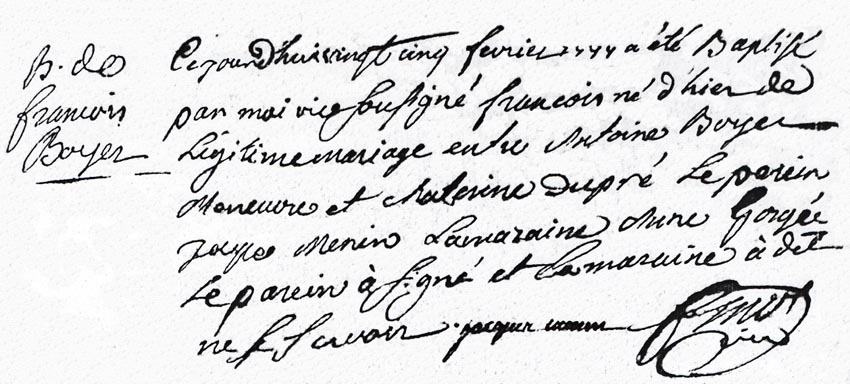 B. de
francois
Boyer
Cejourdhui vingt cinq fevrier 1777 a été Baptisé
par moi vic. sousigné francois né d'hier de
Légitime mariage entre Antoine Boyer
Maneuvre et Katerine dupré Le parein
jacque Menin Lamaraine Anne Gorgée
Le parein à signé et Lamaraine à dit
ne Le Savoir . jacque